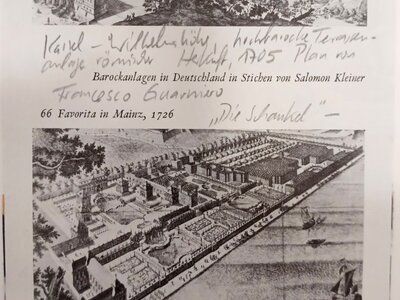 Kassel – Wilhelmshöhe, hochbarocke Terrassen-
anlage römischer Herkunft, 1705 Plan von
Barockanlagen in Deutschland in Stichen von Salomon Kleiner
Francesco Guarniero
66 Favorita in Mainz, 1726
„Die Schaukel" –